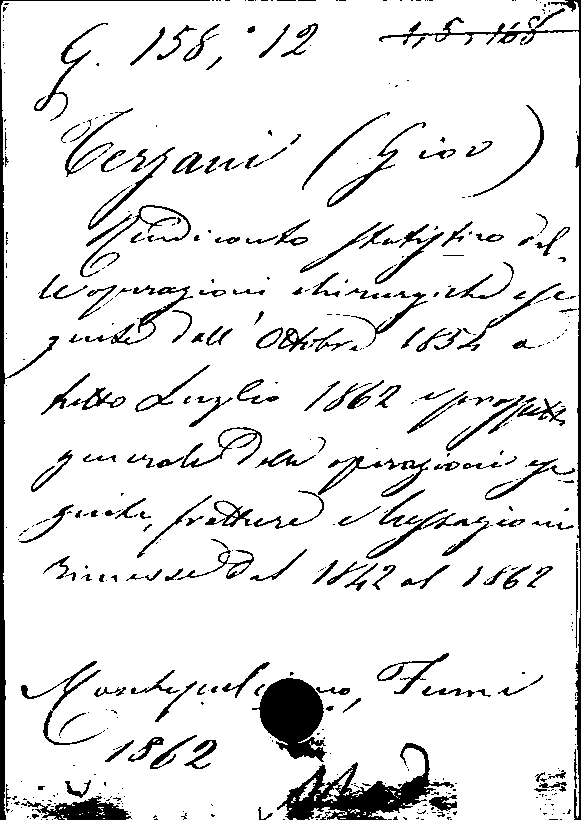 G. 158, 12 1, 5, 168
Terzani (Giov)
Rendiconto statistico del-
le operazioni chirurgiche ese-
guite dall'Ottobre 1854 a
tutto Luglio 1862 e prospetto
generale delle operazioni ese-
guite, fratture e lussazioni
rimesse dal 1842 al 1862
Montepulciano, Fumi
1862